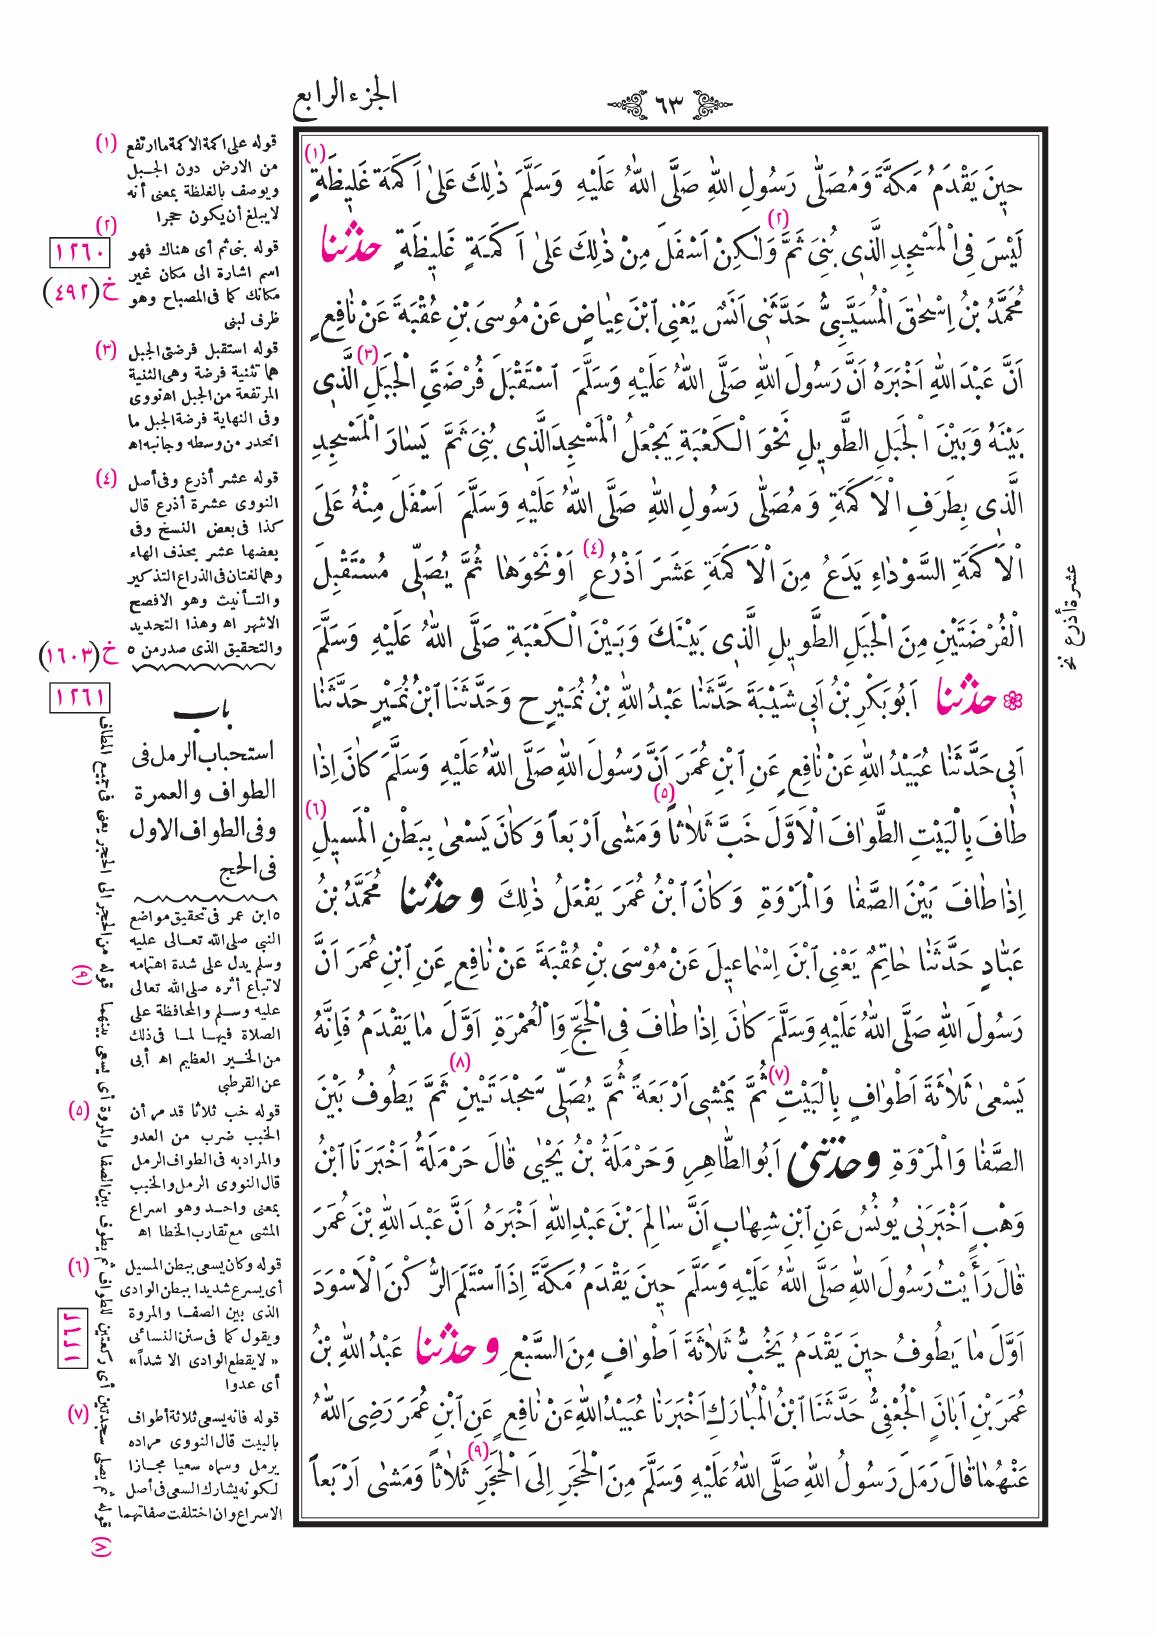 ٦٣
الجزء الرابع
حينَ يَقْدَمُ مَكَّةَ وَمُصَلّٰى رَسُولِ اللّٰهِ صَلَّى اللّٰهُ عَلَيْهِ وَسَلَّمَ ذٰلِكَ عَلىٰ اَكَمَةٍ غَليظَةٍ (١)
لَيْسَ فِى الْمَسْجِدِ الَّذى بُنِىَ ثَمَّ (٢) وَلٰكِنْ اَسْفَلَ مِنْ ذٰلِكَ عَلىٰ اَكَمَةٍ غَليظَةٍ حدثنا
مُحَمَّدُ بْنُ اِسْحٰقَ الْمُسَيَّبِىُّ حَدَّثَنى اَنَسٌ يَعْنِى ابْنَ عِيٰاضٍ عَنْ مُوسَى بْنِ عُقْبَةَ عَنْ نٰافِعٍ
اَنَّ عَبْدَ اللّٰهِ اَخْبَرَهُ اَنَّ رَسُولَ اللّٰهِ صَلَّى اللّٰهُ عَلَيْهِ وَسَلَّمَ اسْتَقْبَلَ فُرْضَتَىِ الْجَبَلِ (٣) الَّذى
بَيْنَهُ وَبَيْنَ الْجَبَلِ الطَّويلِ نَحْوَ الْكَعْبَةِ يَجْعَلُ الْمَسْجِدَ الَّذى بُنِىَ ثَمَّ يَسٰارَ الْمَسْجِدِ
الَّذى بِطَرَفِ الْاَكَمَةِ وَمُصَلّٰى رَسُولِ اللّٰهِ صَلَّى اللّٰهُ عَلَيْهِ وَسَلَّمَ اَسْفَلَ مِنْهُ عَلَى
الْاَكَمَةِ السَّوْدٰاءِ يَدَعُ مِنَ الْاَكَمَةِ عَشَرَ اَذْرُعٍ (٤) اَوْ نَحْوَهٰا ثُمَّ يُصَلّى مُسْتَقْبِلَ
الْفُرْضَتَيْنِ مِنَ الْجَبَلِ الطَّويلِ الَّذى بَيْنَكَ وَبَيْنَ الْكَعْبَةِ صَلَّى اللّٰهُ عَلَيْهِ وَسَلَّمَ
❁ حدثنا اَبُو بَكْرِ بْنُ اَبى شَيْبَةَ حَدَّثَنٰا عَبْدُ اللّٰهِ بْنُ نُمَيْرٍ ح وَحَدَّثَنَا ابْنُ نُمَيْرٍ حَدَّثَنٰا
اَبى حَدَّثَنٰا عُبَيْدُ اللّٰهِ عَنْ نٰافِعٍ عَنِ ابْنِ عُمَرَ اَنَّ رَسُولَ اللّٰهِ صَلَّى اللّٰهُ عَلَيْهِ وَسَلَّمَ كٰانَ اِذٰا
طٰافَ بِالْبَيْتِ الطَّوٰافَ الْاَوَّلَ خَبَّ ثَلٰاثاً (٥) وَمَشٰى اَرْبَعاً وَكٰانَ يَسْعىٰ بِبَطْنِ الْمَسيلِ (٦)
اِذٰا طٰافَ بَيْنَ الصَّفٰا وَالْمَرْوَةِ وَكٰانَ ابْنُ عُمَرَ يَفْعَلُ ذٰلِكَ وحدثنا مُحَمَّدُ بْنُ
عَبّٰادٍ حَدَّثَنٰا حٰاتِمٌ يَعْنِى ابْنَ اِسْمٰاعيلَ عَنْ مُوْسَى بْنِ عُقْبَةَ عَنْ نٰافِعٍ عَنِ ابْنِ عُمَرَ اَنَّ
رَسُولَ اللّٰهِ صَلَّى اللّٰهُ عَلَيْهِ وَسَلَّمَ كٰانَ اِذٰا طٰافَ فِى الْحَجِّ وَالْعُمْرَةِ اَوَّلَ مٰا يَقْدَمُ فَاِنَّهُ
يَسْعىٰ ثَلٰاثَةَ اَطْوٰافٍ بِالْبَيْتِ (٧) ثُمَّ يَمْشى اَرْبَعَةً ثُمَّ يُصَلّى سَجْدَتَيْنِ (٨) ثُمَّ يَطُوفُ بَيْنَ
الصَّفٰا وَالْمَرْوَةِ وحدثنى اَبُو الطّٰاهِرِ وَحَرْمَلَةُ بْنُ يَحْيٰى قٰالَ حَرْمَلَةُ اَخْبَرَنَا ابْنُ
وَهْبٍ اَخْبَرَنى يُونُسُ عَنِ ابْنِ شِهٰابٍ اَنَّ سٰالِمَ بْنَ عَبْدِ اللّٰهِ اَخْبَرَهُ اَنَّ عَبْدَ اللّٰهِ بْنَ عُمَرَ
قٰالَ رَأَيْتُ رَسُولَ اللّٰهِ صَلَّى اللّٰهُ عَلَيْهِ وَسَلَّمَ حينَ يَقْدَمُ مَكَّةَ اِذَا اسْتَلَمَ الرُّكْنَ الْاَسْوَدَ
اَوَّلَ مٰا يَطُوفُ حينَ يَقْدَمُ يَخُبُّ ثَلٰاثَةَ اَطْوٰافٍ مِنَ السَّبْعِ وحدثنا عَبْدُ اللّٰهِ بْنُ
عُمَرَ بْنِ اَبَانٍ الْجُعْفِىُّ حَدَّثَنَا ابْنُ الْمُبٰارَكِ اَخْبَرَنٰا عُبَيْدُ اللّٰهِ عَنْ نٰافِعٍ عَنِ ابْنِ عُمَرَ رَضِىَ اللّٰهُ
عَنْهُمٰا قٰالَ رَمَلَ رَسُولُ اللّٰهِ صَلَّى اللّٰهُ عَلَيْهِ وَسَلَّمَ مِنَ الْحَجَرِ اِلَى الْحَجَرِ (٩) ثَلٰاثاً وَمَشىٰ اَرْبَعاً
عشرة أذرع نخ
(١) قوله على اكمة الاكمة ما ارتفع
من الارض دون الجبل
ويوصف بالغلظة بمعنى أنه
لا يبلغ أن يكون حجرا
(٢) قوله بنى ثم أى هناك فهو
١٢٦٠
اسم اشارة الى مكان غير
خ (٤٩٢)
مكانك كما فى المصباح وهو
ظرف لبنى
(٣) قوله استقبل فرضتى الجبل
هما تثنية فرضة وهى الثنية
المرتفعة من الجبل اه نووى
وفى النهاية فرضة الجبل ما
انحدر من وسطه وجانبه اه
(٤) قوله عشر أذرع وفى أصل
النووى عشرة أذرع قال
كذا فى بعض النسخ وفى
بعضها عشر بحذف الهاء
وهما لغتان فى الذراع التذكير
والتأنيث وهو الافصح
الاشهر اه وهذا التحديد
والتحقيق الذى صدر من ٥
خ (١٦٠٣)
١٢٦١
باب
استحباب الرمل فى
الطواف والعمرة
وفى الطواف الاول
فى الحج
٥ ابن عمر فى تحقيق مواضع
النبى صلى الله تعالى عليه
وسلم يدل على شدة اهتمامه
لاتباع أثره صلى الله تعالى
عليه وسلم والمحافظة على
الصلاة فيها لما فى ذلك
من الخير العظيم اه أبى
عن القرطبى
(٥) قوله خب ثلاثا قد مر أن
الخبب ضرب من العدو
والمراد به فى الطواف الرمل
قال النووى الرمل والخبب
بمعنى واحد وهو اسراع
المشى مع تقارب الخطا اه
(٦) قوله وكان يسعى ببطن المسيل
أى يسرع شديدا ببطن الوادى
الذى بين الصفا والمروة
١٢٦٢
ويقول كما فى سنن النسائى
« لا يقطع الوادى الا شداً »
أى عدوا
(٧) قوله فانه يسعى ثلاثة أطواف
بالبيت قال النووى مراده
يرمل وسماه سعيا مجازا
لكونه يشارك السعى فى أصل
الاسراع وان اختلفت صفاتهما
(٨) قوله ثم يصلى سجدتين أى ركعتين للطواف ثم يطوف بين الصفا والمروة أى يسعى بينهما (٩) قوله من الحجر الى الحجر يعنى فى جميع المطاف